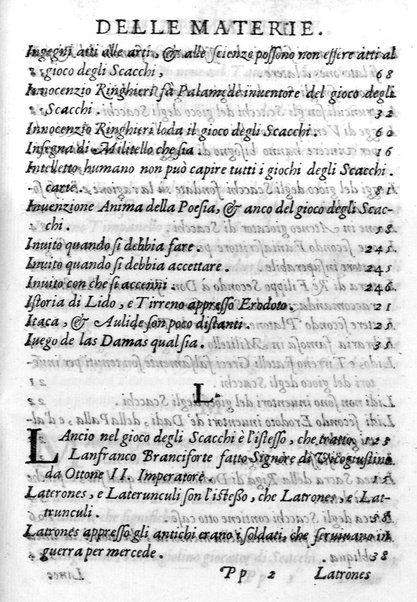 DELLE MATERIE.
Ingegni atti alle arti, & alle scienze possono non essere atti al
gioco degli Scacchi, 68
Innocenzio Ringhieri fà Palamede inuentore del gioco degli
Scacchi. 32
Innocenzio Ringhieri loda il gioco degli Scacchi. 60
Insegna di Militello che sia. 16
Intelletto humano non può capire tutti i giochi degli Scacchi.
carte. 81
Inuenzione Anima della Poesia, & anco del gioco degli Scac-
chi. 58
Inuito quando si debbia fare. 245
Inuito quando si debbia accettare. 245
Inuito con che si accenni. 246
Istoria di Lido, e Tirreno appresso Erodoto. 21
Itaca, & Aulide son poco distanti.
Iuego de las Damas qual sia. 31
L.
LAncio nel gioco degli Scacchi è l'istesso, che tratto. 125
Lanfranco Branciforte fatto Signore di Vicogrustino
da Ottone II. Imperatore.
Laterones, e Laterunculi son l'istesso, che Latrones, e La-
trunculi.
Latrones appresso gli antichi erano i soldati, che seruiuano in
guerra per mercede. 38
Pp 2 Latrones